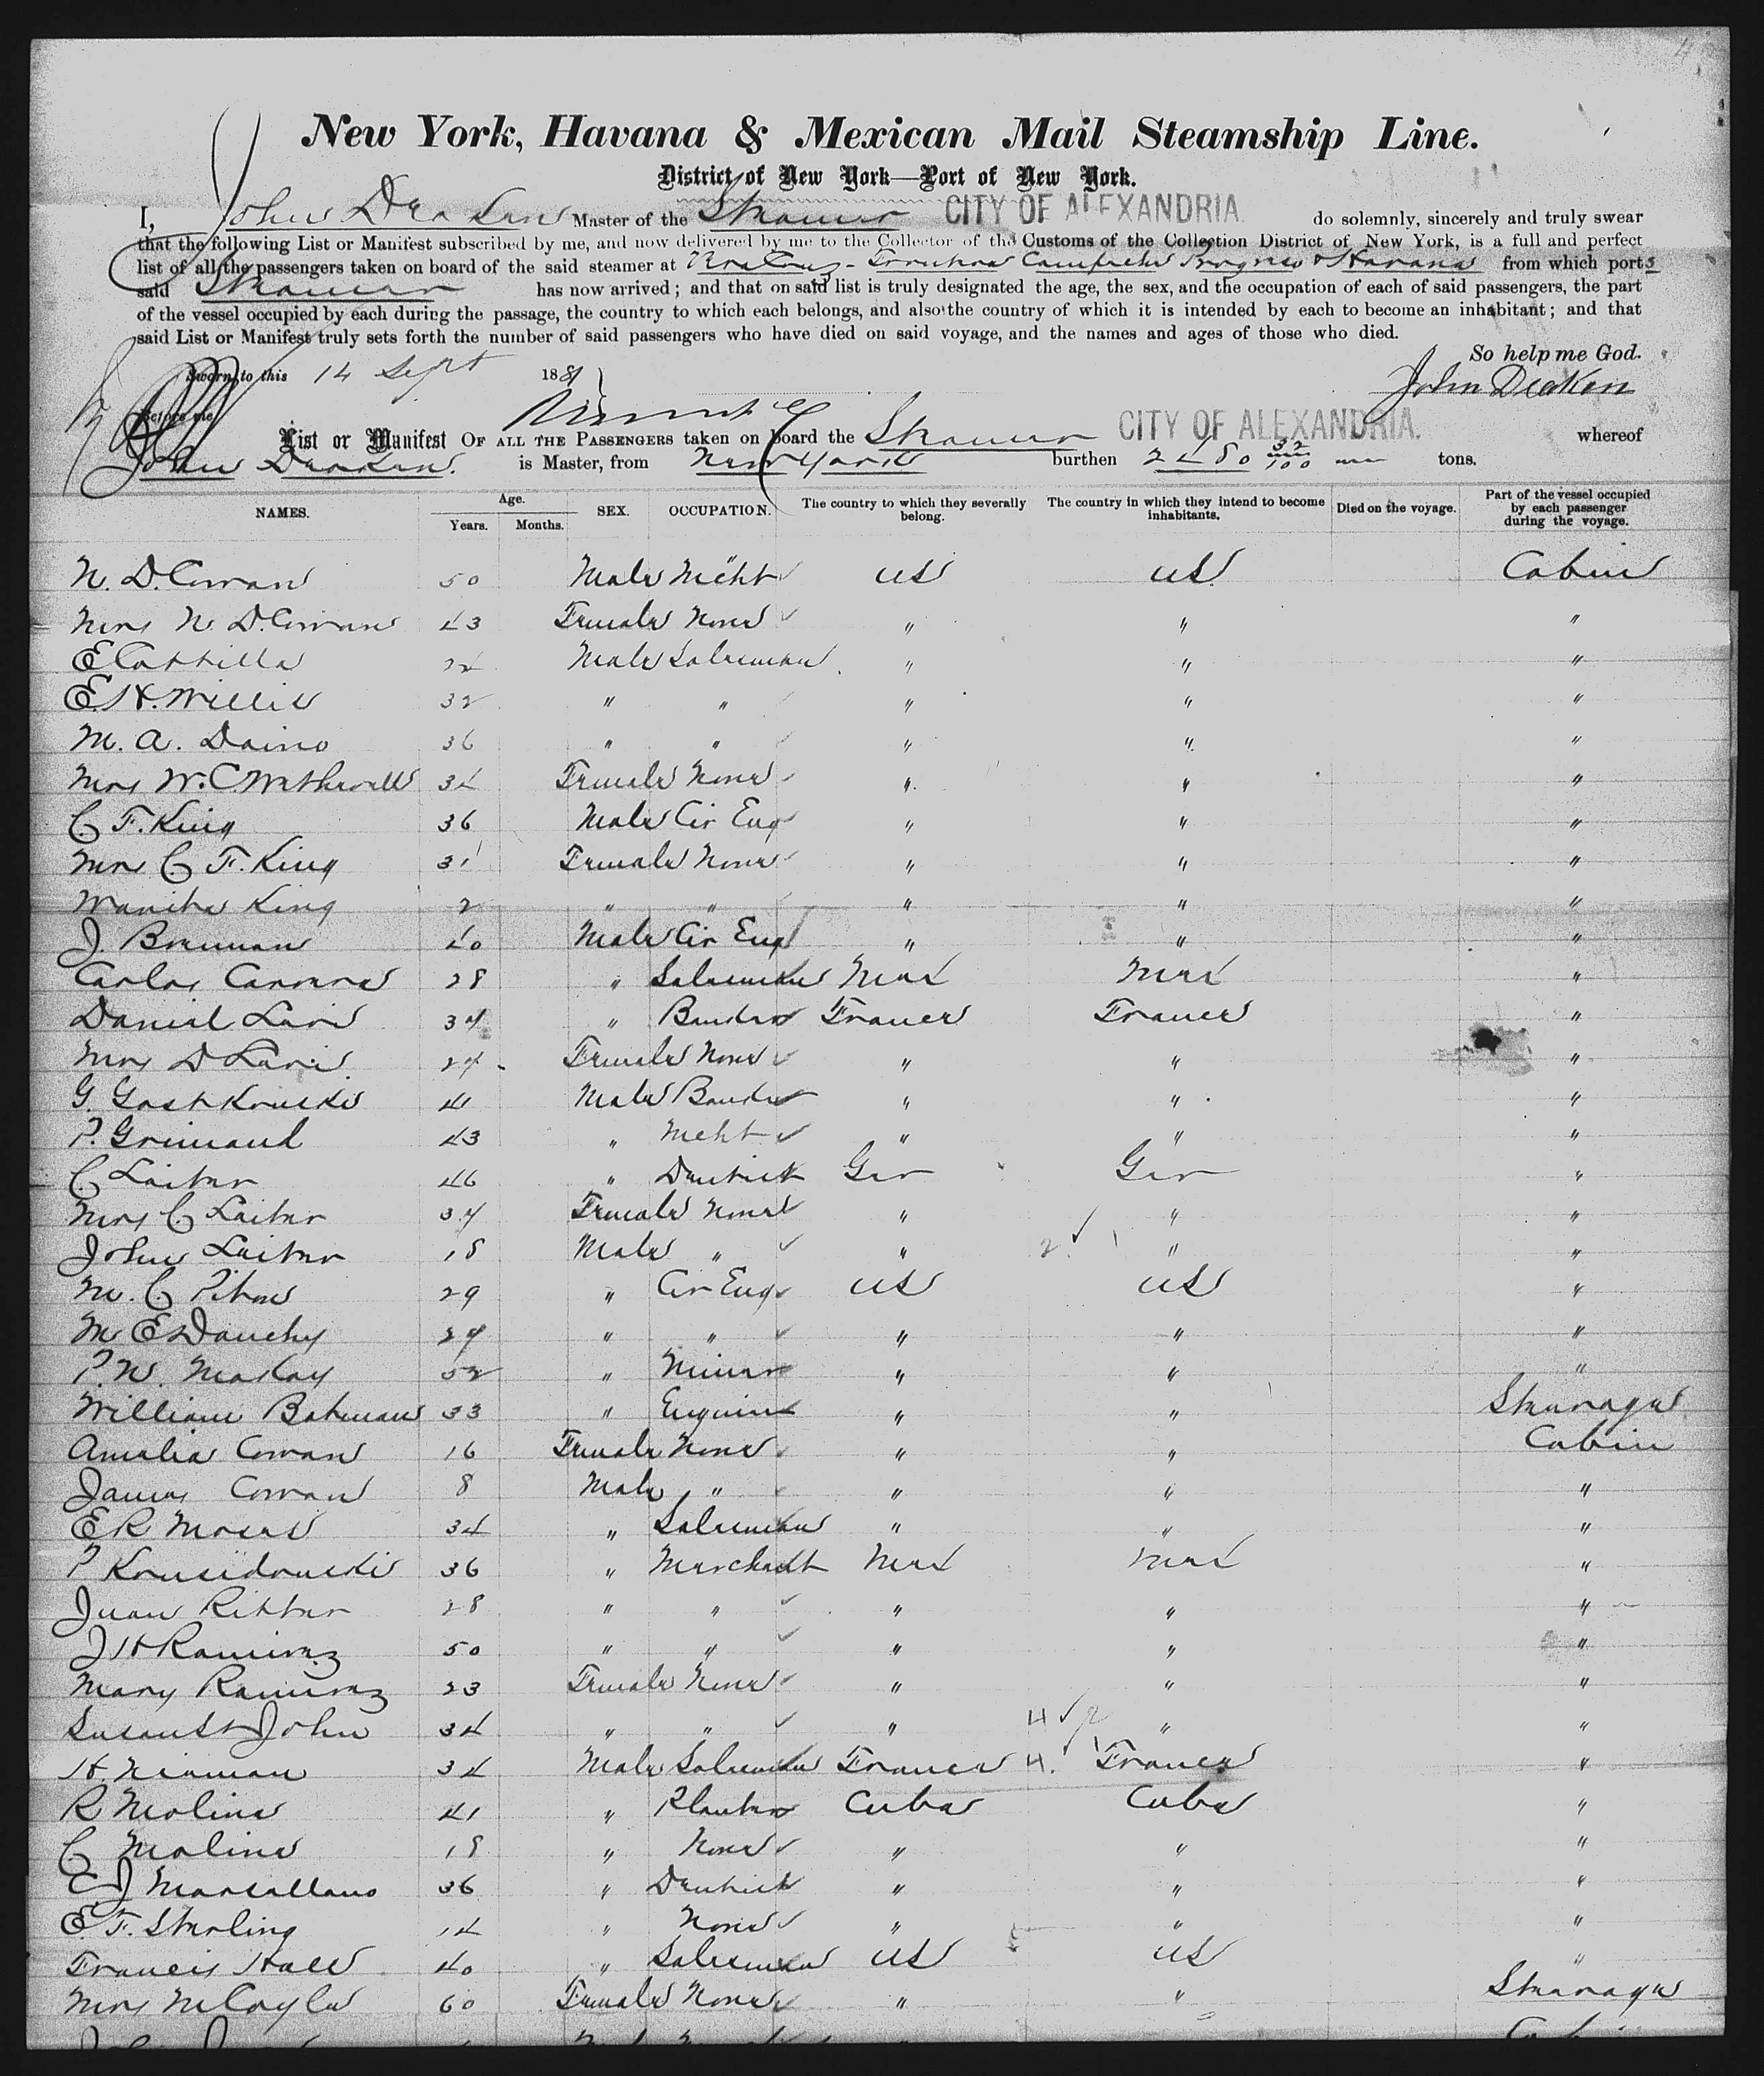 New York, Havana & Mexican Mail Steamship Line.
District of New York—Port of New York.
I, John Deaken Master of the Steamer CITY OF ALEXANDRIA. do solemnly, sincerely and truly swear
that the following List or Manifest subscribed by me, and now delivered by me to the Collector of the Customs of the Collection District of New York, is a full and perfect
list of all the passengers taken on board of the said steamer at Vera Cruz - Frontera Campeche Progreso & Havana from which ports
said Steamer has now arrived; and that on said list is truly designated the age, the sex, and the occupation of each of said passengers, the part
of the vessel occupied by each during the passage, the country to which each belongs, and also the country of which it is intended by each to become an inhabitant; and that
said List or Manifest truly sets forth the number of said passengers who have died on said voyage, and the names and ages of those who died.
So help me God.
Sworn to this 14 Sept 1881
John Deaken
Before me
List or Manifest OF ALL THE PASSENGERS taken on board the Steamer CITY OF ALEXANDRIA. whereof
John Deaken. is Master, from New York burthen 2480 32/100 tons.
NAMES. Age. Years. Months. SEX. OCCUPATION. The country to which they severally belong. The country in which they intend to become inhabitants. Died on the voyage. Part of the vessel occupied by each passenger during the voyage.
N. D. Cowan 50 Male Mcht US US Cabin
Mrs N. D. Cowan 43 Female None " " "
E Cattilla 24 Male Salesman " " "
E. H. Willis 32 " " " " "
M. A. Daino 36 " " " " "
Mrs W. C. Wetherell 34 Female None " " "
C F. King 36 Male Civ Eng " " "
Mrs C F. King 31 Female None " " "
Wanita King 2 " " " " "
J. Brennan 40 Male Civ Eng " " "
Carlos Carrera 28 " Salesman Mex Mex "
Daniel Levi 34 " Bander France France "
Mrs D Levi 24 Female None " " "
G. Gostkouski 41 Male Bander " " "
P. Grimaud 43 " Mcht " " "
C Laiter 46 " Dentist Ger Ger "
Mrs C. Laiter 34 Female None " " "
John Laiter 18 Male " " " "
M. C Piton 29 " Civ Eng US US "
M E Dauchy 24 " " " " "
P. W. McKay 52 " Miner " " "
William Bateman 33 " Engineer " " Steerage
Amelia Cowan 16 Female None " " Cabin
James Cowan 8 Male " " " "
E R Moses 34 " Salesman " " "
P Kousidouski 36 " Merchant Mex Mex "
Juan Ritter 28 " " " " "
J H Ramirez 50 " " " " "
Mary Ramirez 23 Female None " " "
Susan St John 34 " " " " "
H. Nieman 34 Male Salesman France France "
R Molina 41 " Planter Cuba Cuba "
C Molina 18 " None " " "
E J Marsallano 36 " Dentist " " "
E. F. Sterling 14 " None " " "
Francis Hall 40 " Salesman US US "
Mrs McCoyle 60 Female None " " Steerage